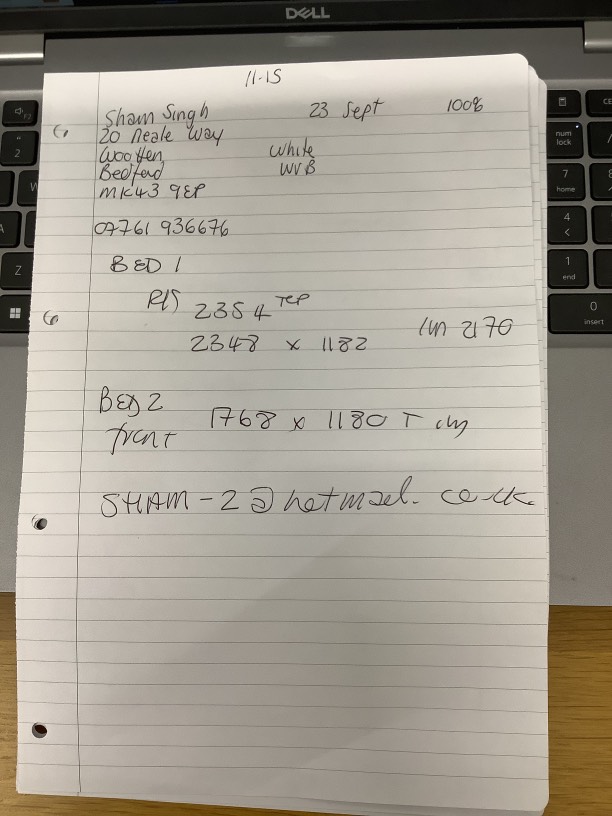 DELL
11-15
Sham Singh 23 Sept 100%
20 Neale Way
Wootten White
Bedford WVB
MK43 9EP
07761 936676
BED 1
2354 TOP
2348 x 1182 2170
BED 2 1768 x 1180 T
front
SHAM-2@hotmael.co.uk
num
lock
7
home
4
<
1
end
0
insert
2
W
A
Z